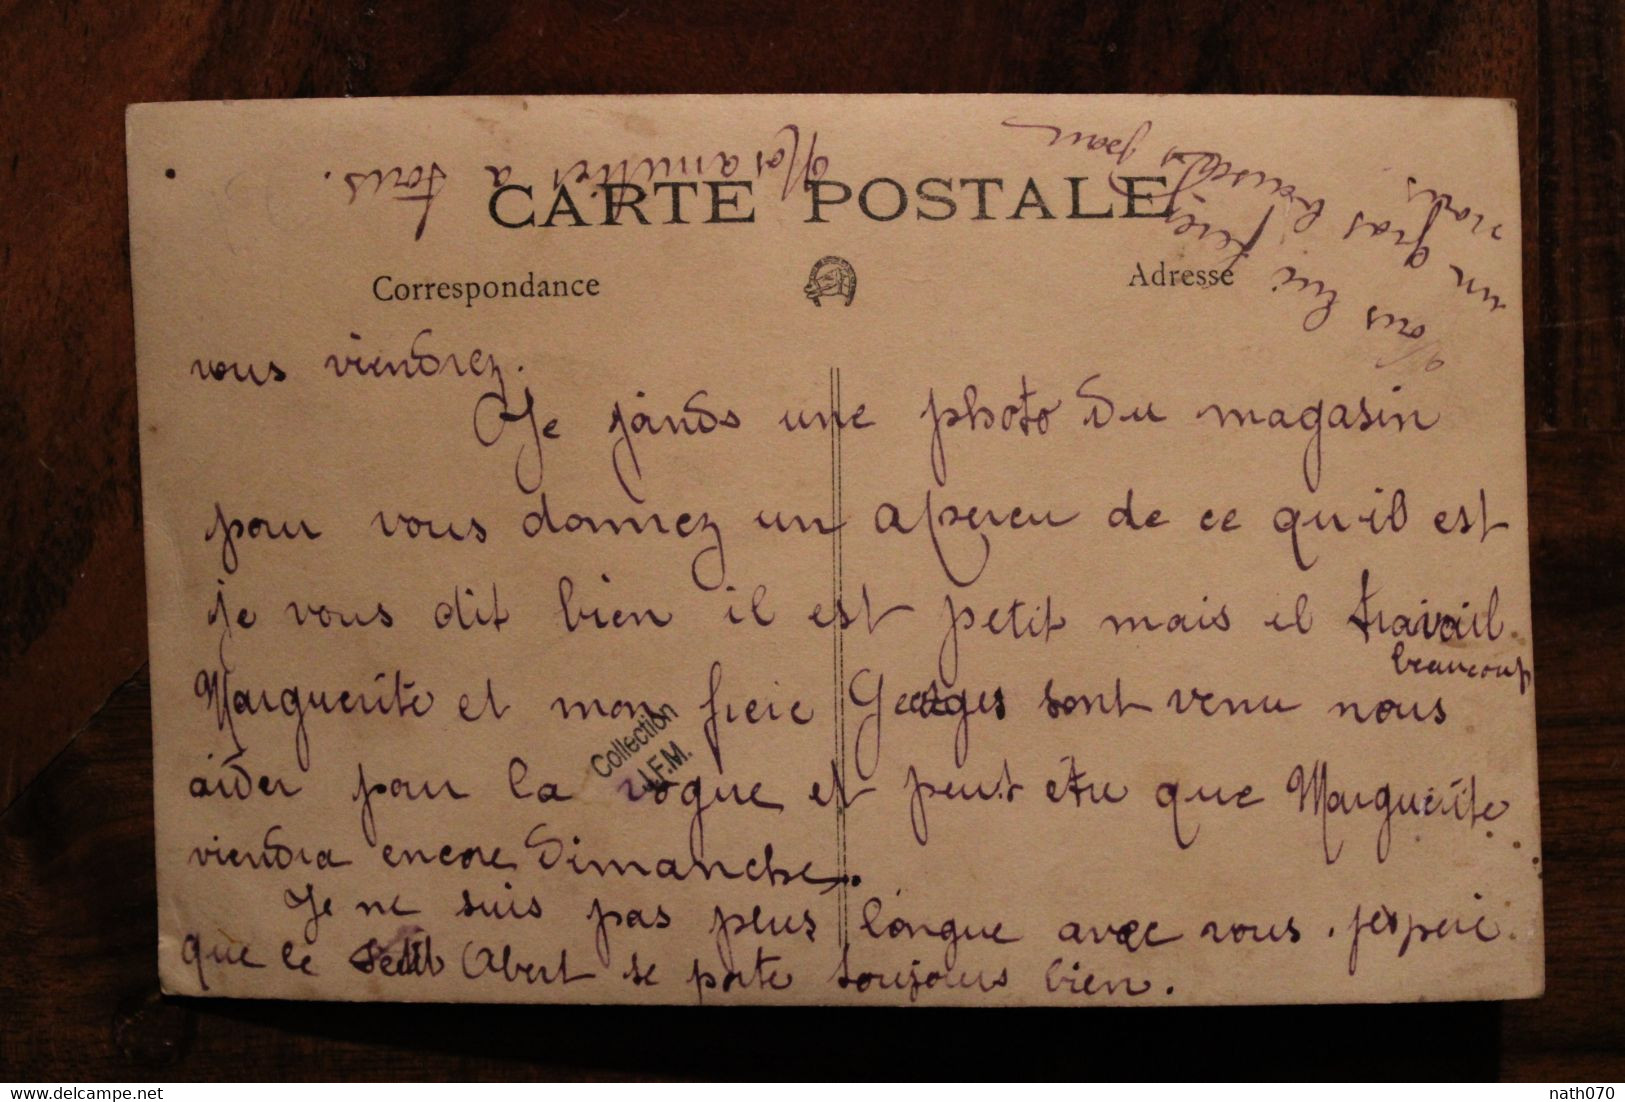 CARTE POSTALE
Correspondance
Adresse
vous viendrez.
Je jands une photo du magasin
pour vous donnez un aperceu de ce qu-il est
je vous dit bien il est petit mais il travail
beaucoup
Marguerite et mon frere Georges sont venu nous
aider pour la vogue et peut etre que Marguerite
viendra encore dimanche.
Je ne suis pas plus longue avec vous. j'espere
que le petit Abert se porte toujours bien.
Vous lui ferez
un gros baiser pour
nous
Nos amities a tous.
Collection
J.F.M.
delcampe.net
nath070